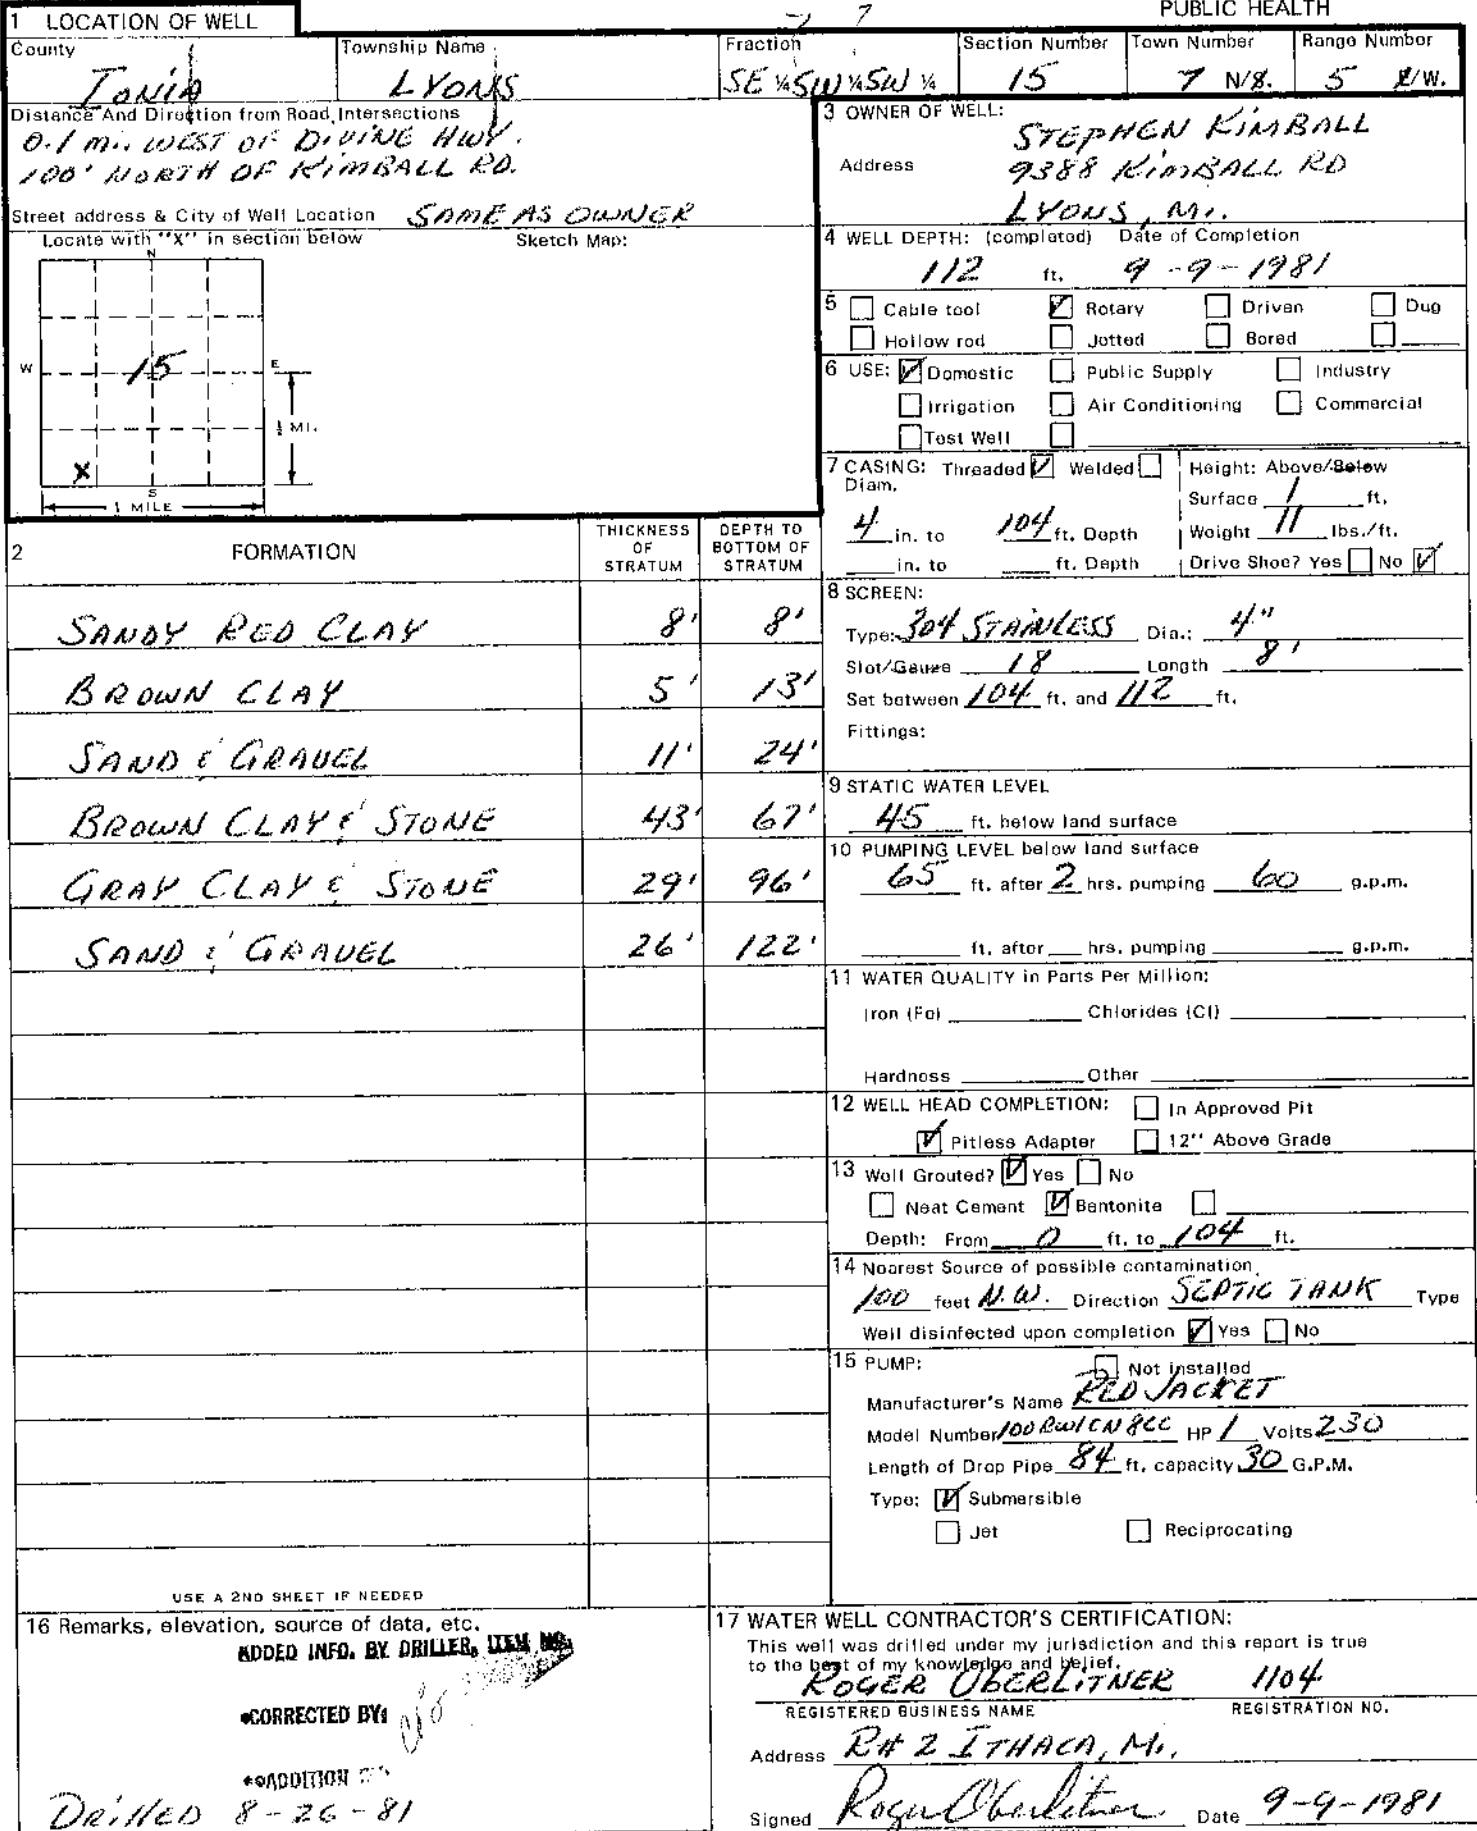 PUBLIC HEALTH
1 LOCATION OF WELL
County
Township Name
Fraction
Section Number
Town Number
Range Number
IONIA
LYONS
SE ¼ SW ¼ SW ¼
15
7 N/S.
5 E/W.
Distance And Direction from Road Intersections
0.1 mi. WEST OF DIVINE HWY.
100' NORTH OF KIMBALL RD.
Street address & City of Well Location SAME AS OWNER
Locate with "X" in section below
Sketch Map:
N
W
15
E
½ MI.
X
S
1 MILE
3 OWNER OF WELL:
STEPHEN KIMBALL
Address
9388 KIMBALL RD
LYONS, Mi.
4 WELL DEPTH: (completed) Date of Completion
112 ft. 9-9-1981
5 Cable tool Rotary Driven Dug
Hollow rod Jetted Bored
6 USE: Domestic Public Supply Industry
Irrigation Air Conditioning Commercial
Test Well
7 CASING: Threaded Welded
Diam.
4 in. to 104 ft. Depth
in. to ft. Depth
Height: Above/Below
Surface 1 ft.
Weight 11 lbs./ft.
Drive Shoe? Yes No
2 FORMATION
THICKNESS OF STRATUM
DEPTH TO BOTTOM OF STRATUM
SANDY RED CLAY 8' 8'
BROWN CLAY 5' 13'
SAND & GRAVEL 11' 24'
BROWN CLAY & STONE 43' 67'
GRAY CLAY & STONE 29' 96'
SAND & GRAVEL 26' 122'
USE A 2ND SHEET IF NEEDED
8 SCREEN:
Type: 304 STAINLESS Dia.: 4"
Slot/Gauze 18 Length 8'
Set between 104 ft. and 112 ft.
Fittings:
9 STATIC WATER LEVEL
45 ft. below land surface
10 PUMPING LEVEL below land surface
65 ft. after 2 hrs. pumping 60 g.p.m.
ft. after hrs. pumping g.p.m.
11 WATER QUALITY in Parts Per Million:
Iron (Fe) Chlorides (Cl)
Hardness Other
12 WELL HEAD COMPLETION: In Approved Pit
Pitless Adapter 12" Above Grade
13 Well Grouted? Yes No
Neat Cement Bentonite
Depth: From 0 ft. to 104 ft.
14 Nearest Source of possible contamination
100 feet N.W. Direction SEPTIC TANK Type
Well disinfected upon completion Yes No
15 PUMP: Not installed
Manufacturer's Name RED JACKET
Model Number 100RW1CN8CC HP 1 Volts 230
Length of Drop Pipe 84 ft. capacity 30 G.P.M.
Type: Submersible
Jet Reciprocating
16 Remarks, elevation, source of data, etc.
ADDED INFO. BY DRILLER, ITEM NO.
*CORRECTED BY:
**ADDITION
DRILLED 8-26-81
17 WATER WELL CONTRACTOR'S CERTIFICATION:
This well was drilled under my jurisdiction and this report is true
to the best of my knowledge and belief.
ROGER OBERLITNER 1104
REGISTERED BUSINESS NAME REGISTRATION NO.
Address R# 2 ITHACA, Mi.
Signed Roger Oberlitner Date 9-9-1981